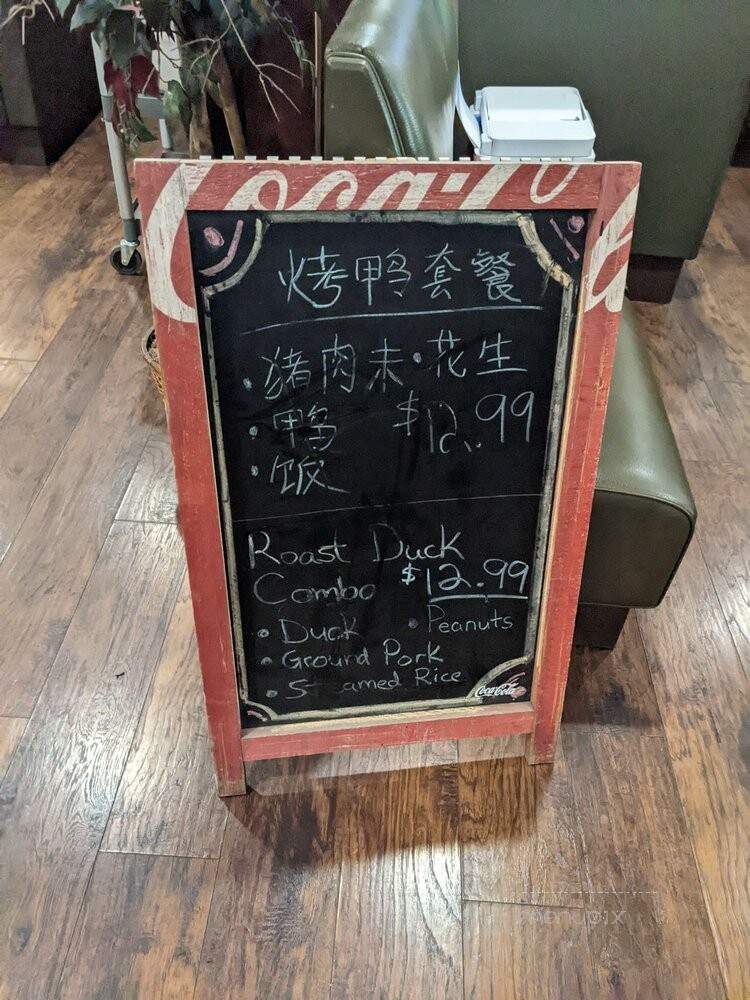 Coca-Co
烤鸭套餐
·猪肉未 ·花生
·鸭 $12.99
·饭
Roast Duck
Combo $12.99
• Duck • Peanuts
• Ground Pork
• St amed Rice
Coca-Cola
menupix